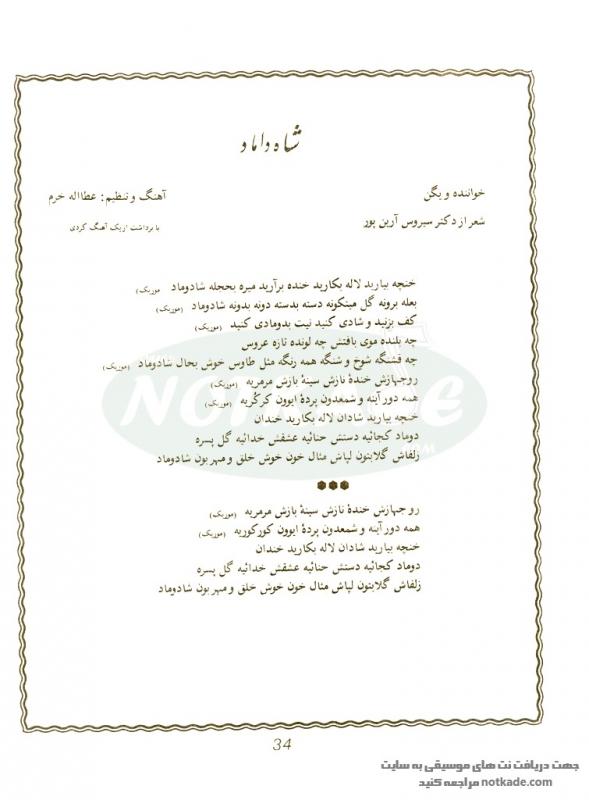 شاه داماد
خواننده ویگن
آهنگ و تنظیم: عطااله خرم
شعر از دکتر سیروس آرین پور
با برداشت ازیک آهنگ کردی
خنچه بیارید لاله بکارید خنده برآرید میره بحجله شادوماد (موزیک)
بعله برونه گل میتکونه دسته بدسته دونه بدونه شادوماد (موزیک)
کف بزنید و شادی کنید نیت بدومادی کنید (موزیک)
چه بلنده موی بافتش چه لونده تازه عروس
چه قشنگه شوخ و شنگه همه رنگه مثل طاوس خوش بحال شادوماد (موزیک)
روجهازش خندهٔ نازش سینهٔ بازش مرمریه (موزیک)
همه دور آینه و شمعدون پردهٔ ایوون کرکریه (موزیک)
خنچه بیارید شادان لاله بکارید خندان
دوماد کجائیه دستش حنائیه عشقش خدائیه گل پسره
زلفاش گلابتون لپاش مثال خون خوش خلق و مهربون شادوماد
روجهازش خندهٔ نازش سینهٔ بازش مرمریه (موزیک)
همه دور آینه و شمعدون پردهٔ ایوون کورکوریه (موزیک)
خنچه بیارید شادان لاله بکارید خندان
دوماد کجائیه دستش حنائیه عشقش خدائیه گل پسره
زلفاش گلابتون لپاش مثال خون خوش خلق و مهربون شادوماد
NOTKADE
.COM
34
جهت دریافت نت های موسیقی به سایت
notkade.com مراجعه کنید